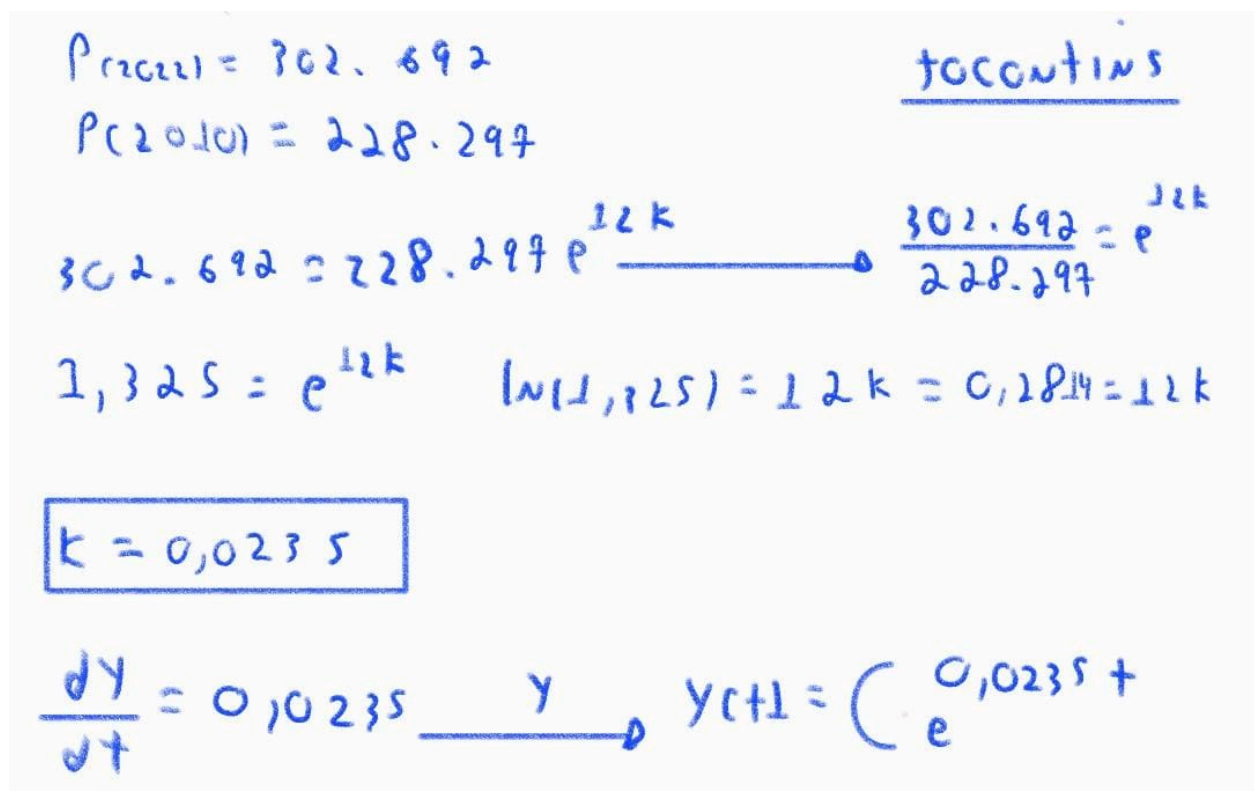 P(2022) = 302.692
tocontins
P(2010) = 228.297
302.692 = 228.297 e^12k → 302.692/228.297 = e^12k
1,325 = e^12k ln(1,325) = 12k = 0,2814 = 12k
k = 0,0235
dy/dt = 0,0235 y → y(t) = C e^0,0235t